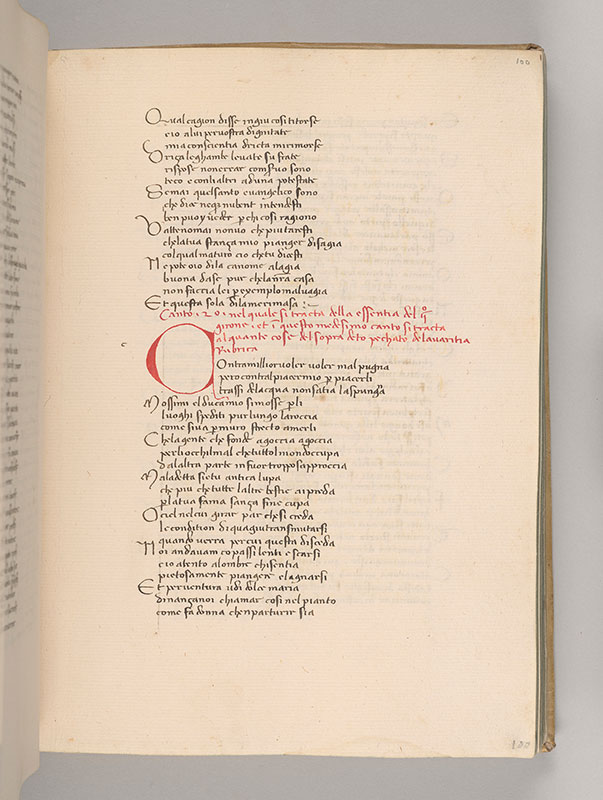 100
Qual cagion disse ingiu cosi titorse
et io alui per vostra dignitate
mia conscientia dricta mi rimorse
Driça le ghambe levate su frate
rispose non errar comsuo sono
teco e con li altri ad una potestate
Se mai quel santo evangelico sono
che dice neqz nubent intendesti
ben puoy veder p chi cosi ragiono
Vattene omai non vo che piu taresti
che la tua stança mio pianger disagia
col qual maturo cio che tu dicesti
Nepote o io di la canome alagia
buona da se pur che la nra casa
non faccia lei p exemplo malvagia
Et questa sola di la me rimasa :~
Canto · 20 · nel quale si tracta della essentia del qo
girone · et i questo medesimo canto si tracta
alquante cose del sopra deto pechato de lavaritia
Rubrica
c
Contra millior voler voler mal pugna
pero contral piacer mio p piacerli
trassi de lacqua non satia la spunga
Mossimi el duca mio si mosse p li
luoghi spediti pur lungo la roccia
come si va p muro strecto a merli
Che la gente che fonde a goccia a goccia
per li occhi il mal che tuttol mondo occupa
da laltra parte in fuor troppo sapproccia
Maladetta sie tu antica lupa
che piu che tutte laltre bestie ai preda
p la tua fama sança fine cupa
O ciel nel cui girar par che si creda
le condition di qua giu transmutarsi
quando verra per cui questa disceda
Noi andavam co passi lenti e scarsi
et io atento a lombre chi sentia
pietosamente pianger e lagnarsi
Et per ventura udi dolce maria
dinançanoi chiamar cosi nel pianto
come fa donna chen parturir sia
100